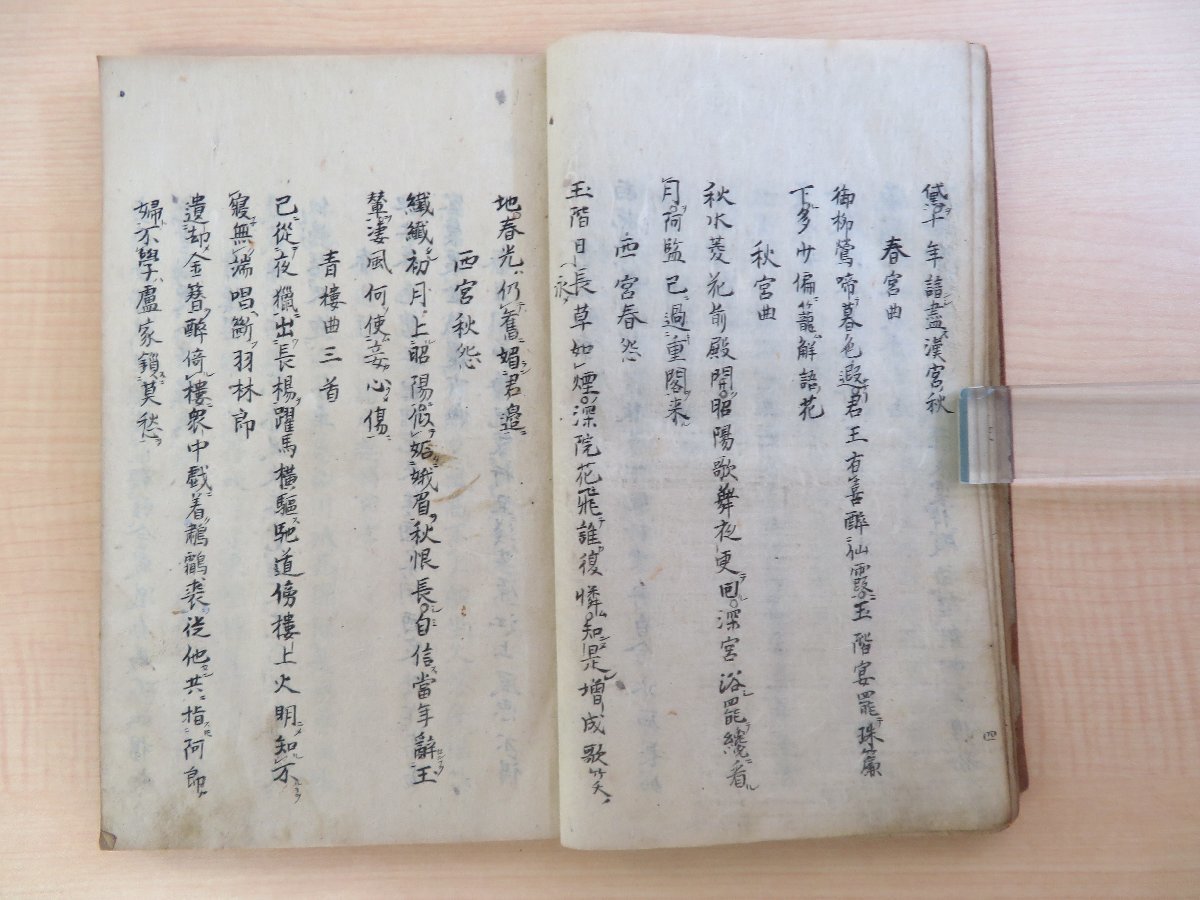 年諳盡漢宮秋
春宮曲
御柳鶯啼暮色遐君王有喜醉仙霞玉階宴罷珠簾
下多少偏籠解語花
秋宮曲
秋水菱花前殿開昭陽歌舞夜更回深宮浴罷纔看
月阿監已過重閣来
西宮春怨
玉階日長草如煙深院花飛誰復憐知是增成歌笑
永
地春光仍舊媚君邊
西宮秋怨
纖纖初月上昭陽似妬娥眉秋恨長自信當年辭王
輦凄風何使妾心傷
青樓曲三首
已從夜獵出長楊躍馬橫驅馳道傍樓上火明知不
寢無端唱斷羽林郎
遺却金簪醉倚樓衆中戱着鷫鸘裘從他共指阿郎
婦不學盧家鎖莫愁
四